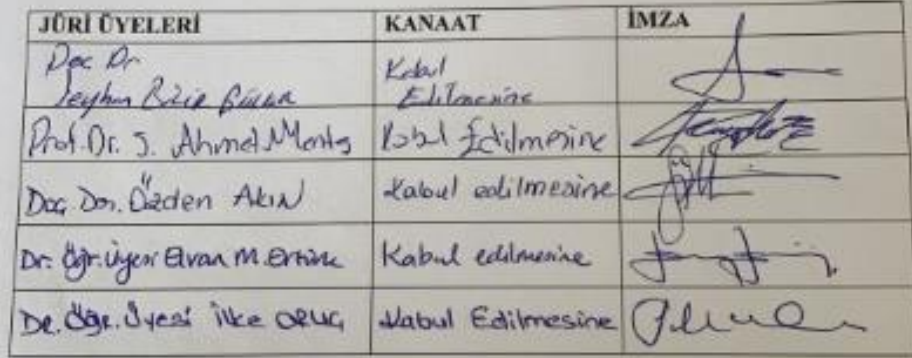 JÜRİ ÜYELERİ KANAAT İMZA
Doç Dr. Kabul
Edilmesine
Prof. Dr. S. Ahmet Menteş Kabul Edilmesine
Doç Dr. Özden Akın Kabul edilmesine
Dr. Öğr. Üyesi Elvan M. Kabul edilmesine
Dr. Öğr. Üyesi İlke ORUÇ Kabul Edilmesine